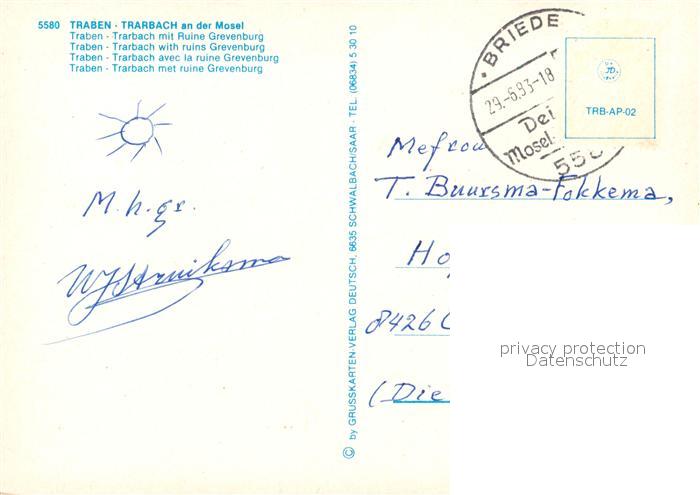 5580 TRABEN - TRARBACH an der Mosel
Traben - Trarbach mit Ruine Grevenburg
Traben - Trarbach with ruins Grevenburg
Traben - Trarbach avec la ruine Grevenburg
Traben - Trarbach met ruine Grevenburg
M.h.gr.
© by GRUSSKARTEN-VERLAG DEUTSCH, 6635 SCHWALBACH/SAAR - TEL. (06834) 5 30 10
BRIEDE
29.-6.93-18
Dei
Mosel
558
TRB-AP-02
Mefrou
T. Buursma-Fokkema,
Ho
8426
(Die
privacy protection
Datenschutz